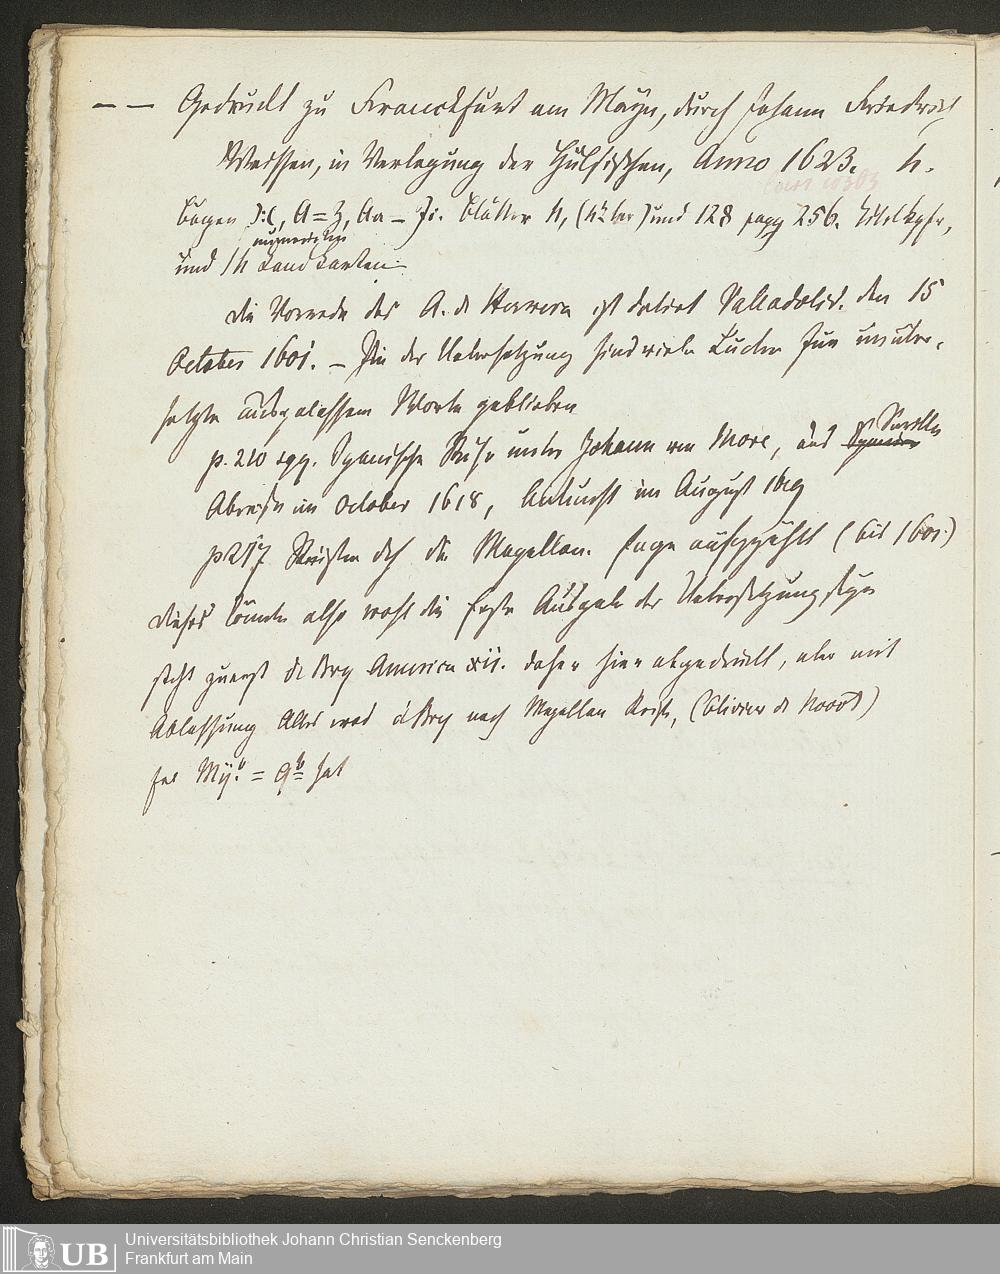 — — Gedruckt zu Franckfurt am Mayn, durch Johann Friedrich
Weissen, in Verlegung der Hulsischen, Anno 1623. 4.
Bogen ):(, A=Z, Aa – Ji. Blätter 4, und 128 pagg 256. Titelkpfr,
numerirte
und 14 Landkarten
Die Vorrede des A. de Herrera ist datirt Valladolid. den 15
October 1601. – In der Uebersetzung sind viele Lücken für unüber-
setzte ausgelassene Worte geblieben
p. 210 sqq. Spanische Reise unter Johann von More, aus Sevilla
Abreise im October 1618, Ankunft im August 1619
p 217 Reisen des die Magellan. aufgezählt (bis 1601.)
dieses könnte also wohl die erste Ausgabe der Uebersetzung seyn
steht zuerst de Bry America xii. daher hier abgedruckt, aber mit
Ablassung Alles was de Bry nach Magellan Reise, (Olivier de Noort)
hat
Universitätsbibliothek Johann Christian Senckenberg
UB Frankfurt am Main